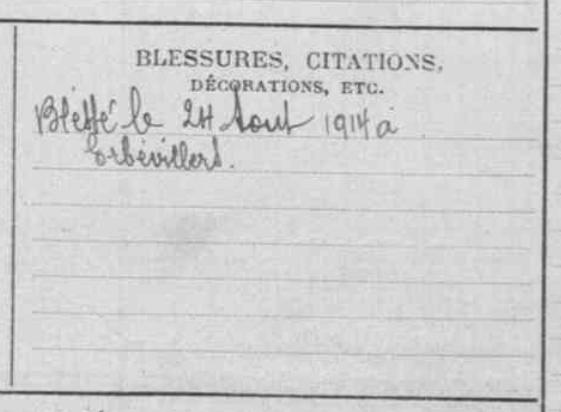 BLESSURES, CITATIONS,
DÉCORATIONS, ETC.
Blessé le 24 Aout 1914 à
Erbévillers.